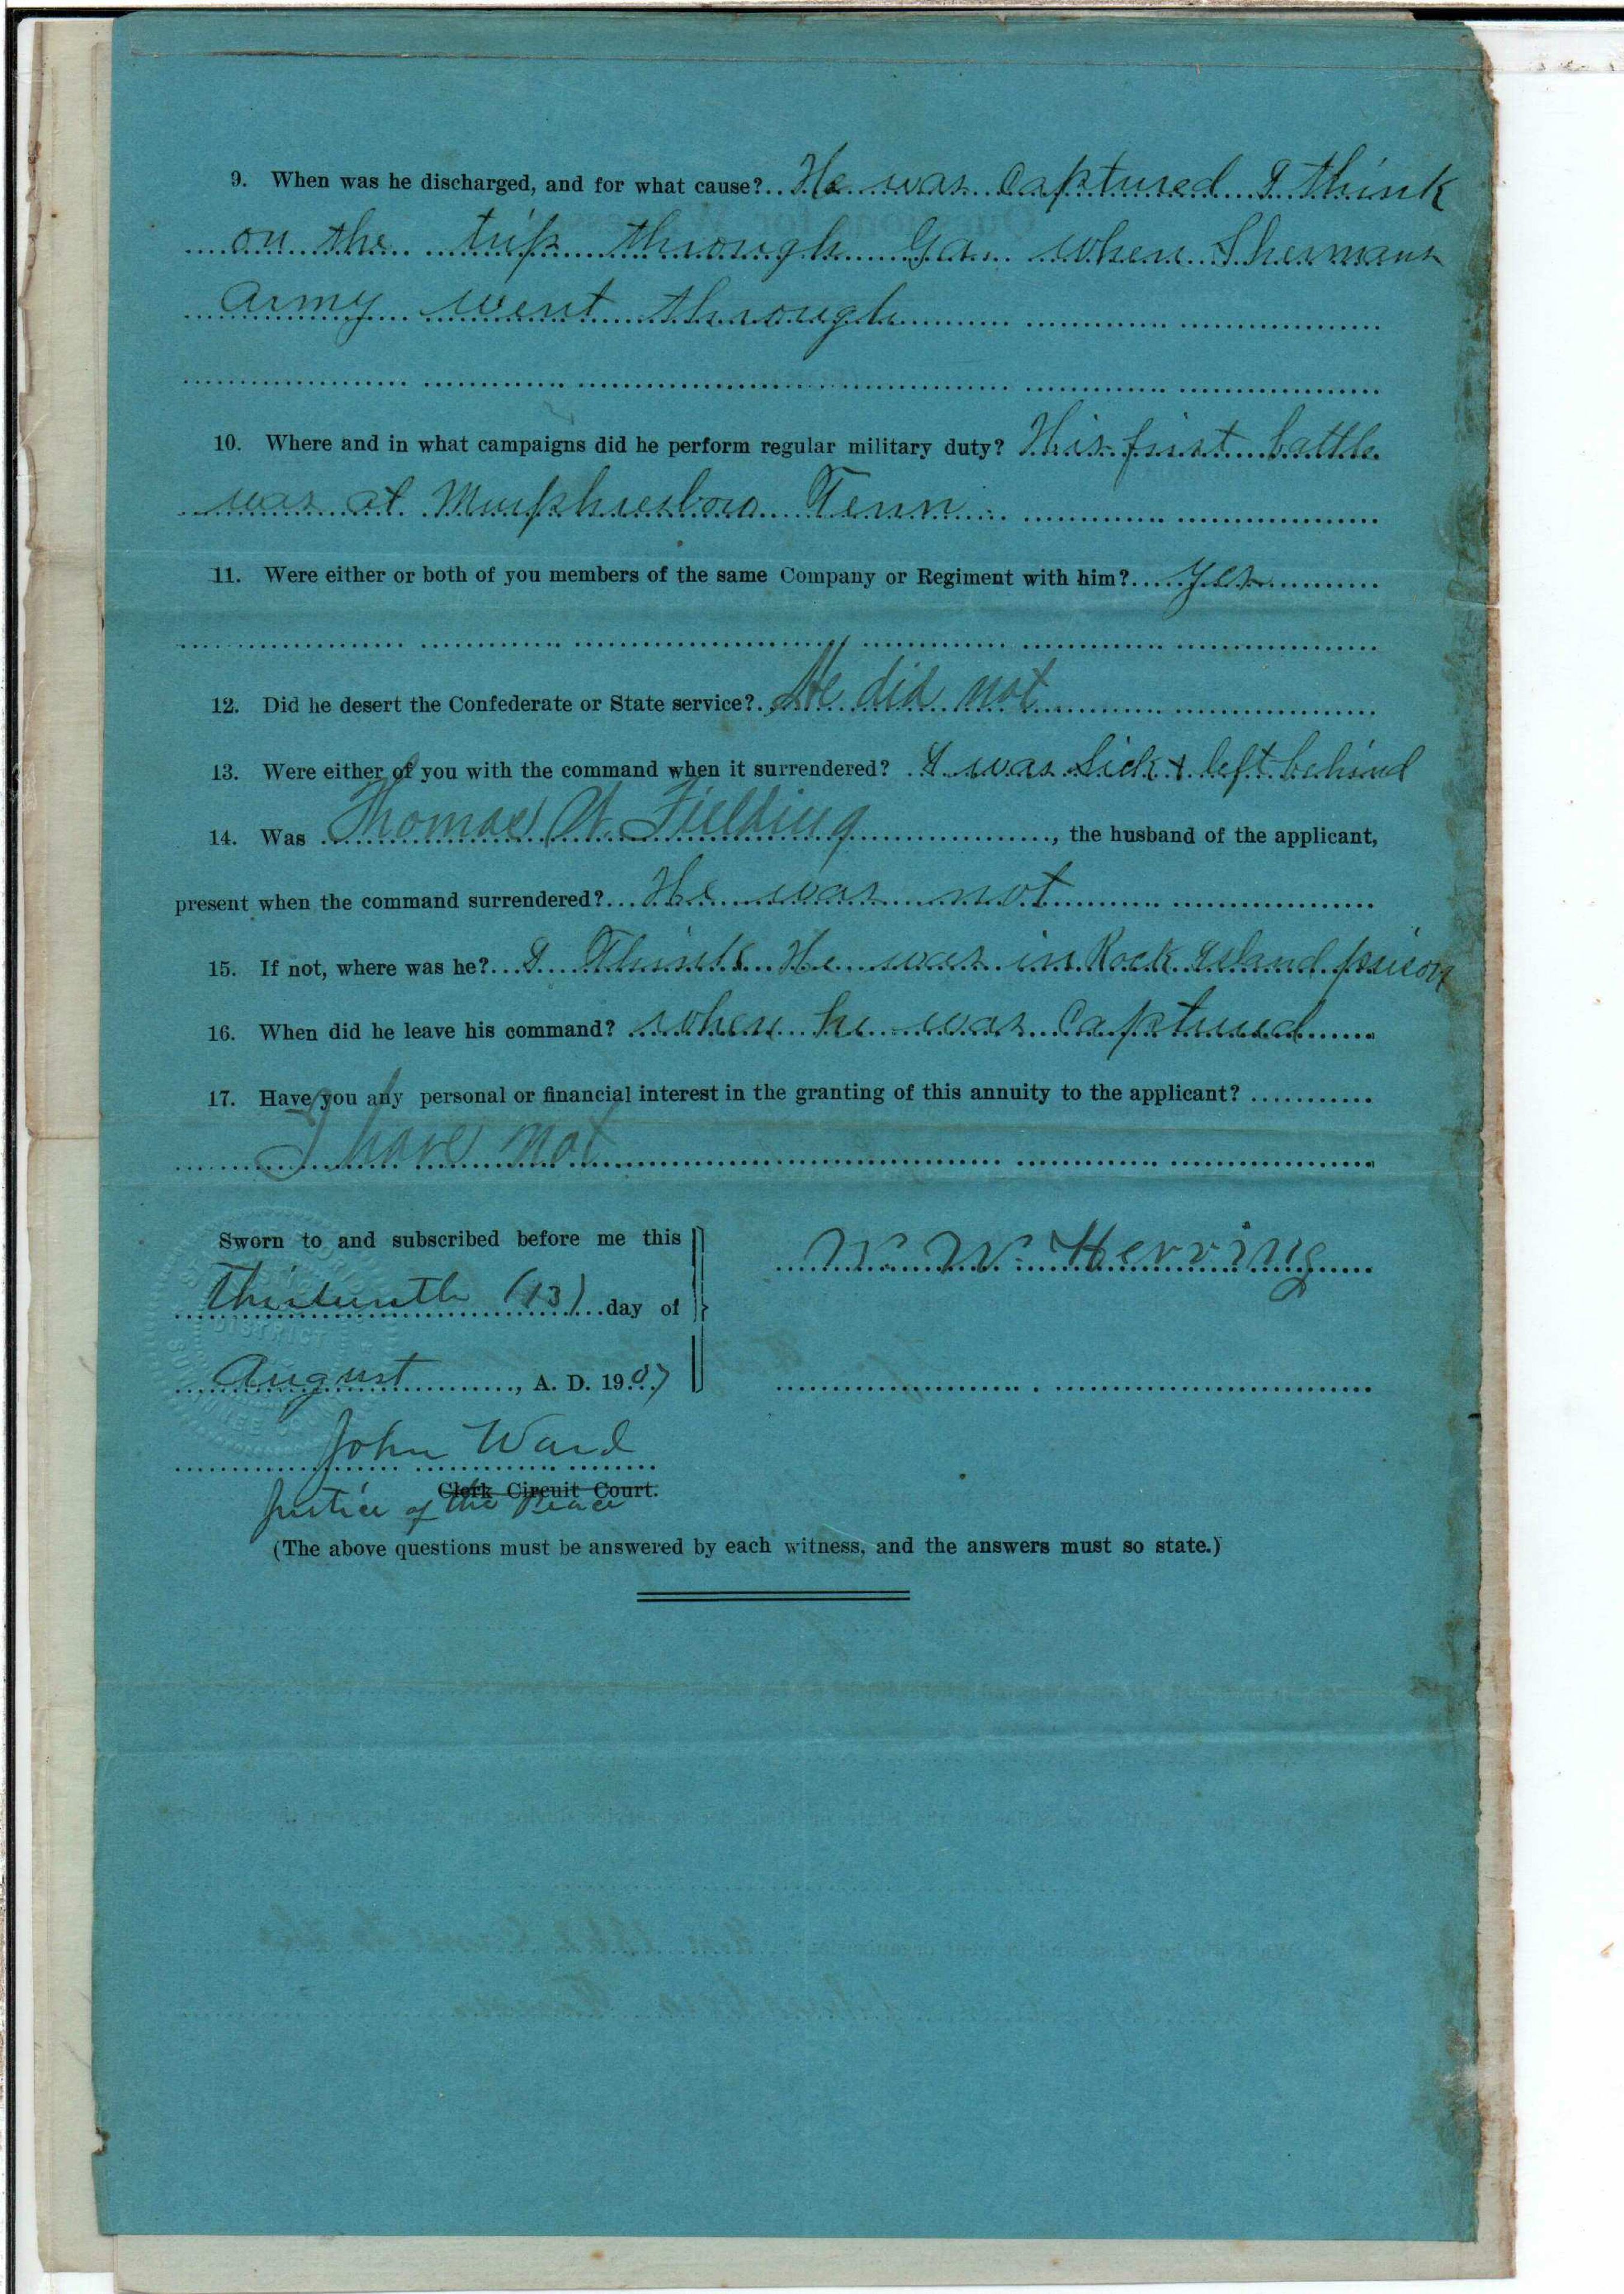 9. When was he discharged, and for what cause? He was Captured I think
on the trip through Ga. when Shermans
army went through
10. Where and in what campaigns did he perform regular military duty? His first battle
was at Murphresboro Tenn.
11. Were either or both of you members of the same Company or Regiment with him? yes
12. Did he desert the Confederate or State service? He did not
13. Were either of you with the command when it surrendered? I was Sick & left behind
14. Was Thomas W. Fielding, the husband of the applicant,
present when the command surrendered? He was not
15. If not, where was he? I Think He was in Rock Island prison
16. When did he leave his command? when he was Captured
17. Have you any personal or financial interest in the granting of this annuity to the applicant?
I have not
Sworn to and subscribed before me this
Thirteenth (13) day of
August, A. D. 1907
W. W. Herring
John Ward
Clerk Circuit Court.
Justice of the Peace
(The above questions must be answered by each witness, and the answers must so state.)
DISTRICT
SUWANNEE COUNTY